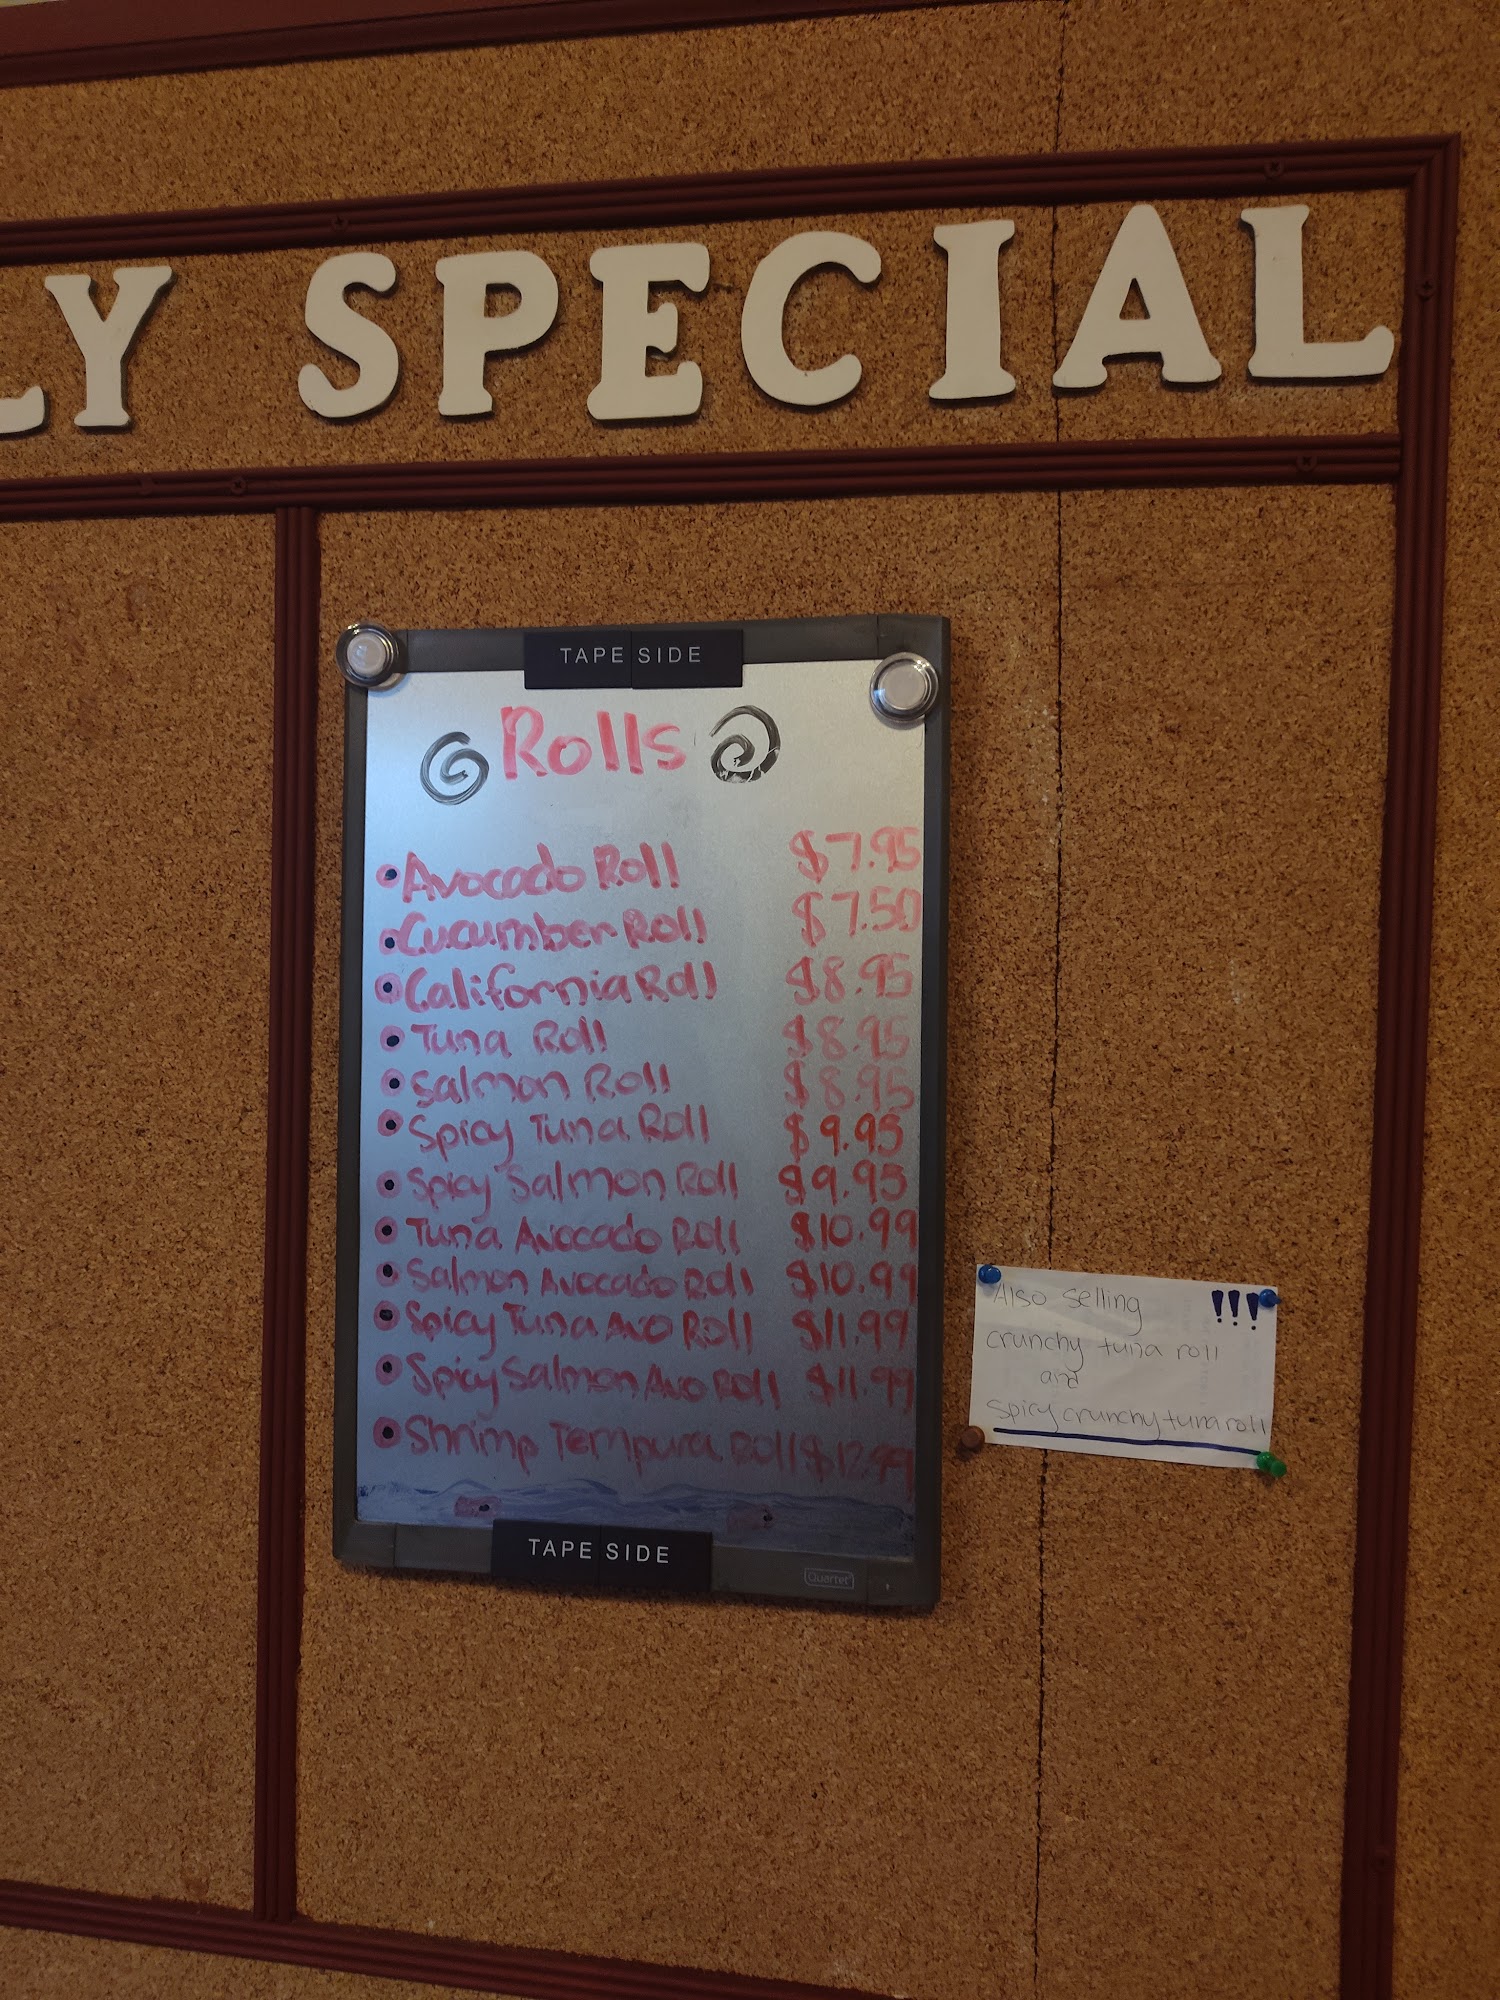 LY SPECIAL
TAPE SIDE
Rolls
Avocado Roll $7.95
Cucumber Roll $7.50
California Roll $8.95
Tuna Roll $8.95
Salmon Roll $8.95
Spicy Tuna Roll $9.95
Spicy Salmon Roll $9.95
Tuna Avocado Roll $10.99
Salmon Avocado Roll $10.99
Spicy Tuna Avo Roll $11.99
Spicy Salmon Avo Roll $11.99
Shrimp Tempura Roll $12.99
TAPE SIDE
Quartet
Also selling !!!
crunchy tuna roll
and
spicy crunchy tuna roll